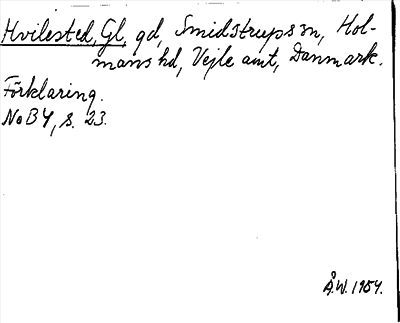 Hvilested, Gl, gd, Smidstrups sn, Hol-
mans hd, Vejle amt, Danmark.
Förklaring.
NoB Y, s. 23.
Å.W. 1954.